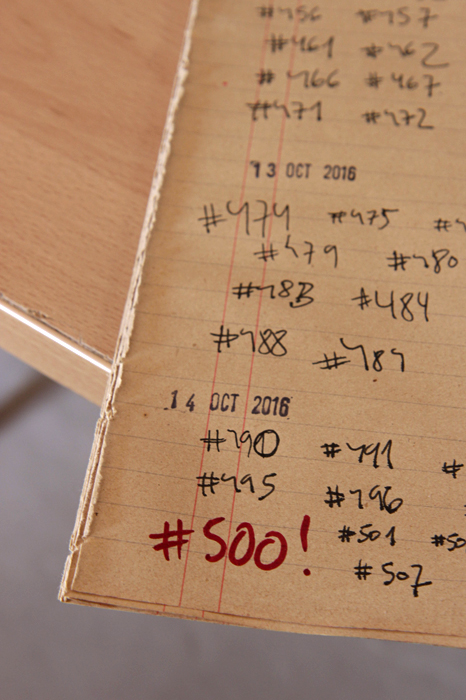 #456 #457
#461 #462
#466 #467
#471 #472
13 OCT 2016
#474 #475
#479 #480
#483 #484
#488 #489
14 OCT 2016
#490 #491
#495 #496
#500! #501
#507